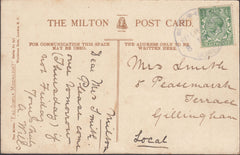 THE MILTON POST CARD.
FOR COMMUNICATION THIS SPACE MAY BE USED.
THE ADDRESS ONLY TO BE WRITTEN HERE.
Milton
Dear Mrs Smith
Please come
tomorrow
(Thursday) if
not Friday
Yours truly
A. Wills
Mrs Smith
8 Peasmarsh
Terrace
Gillingham
Local